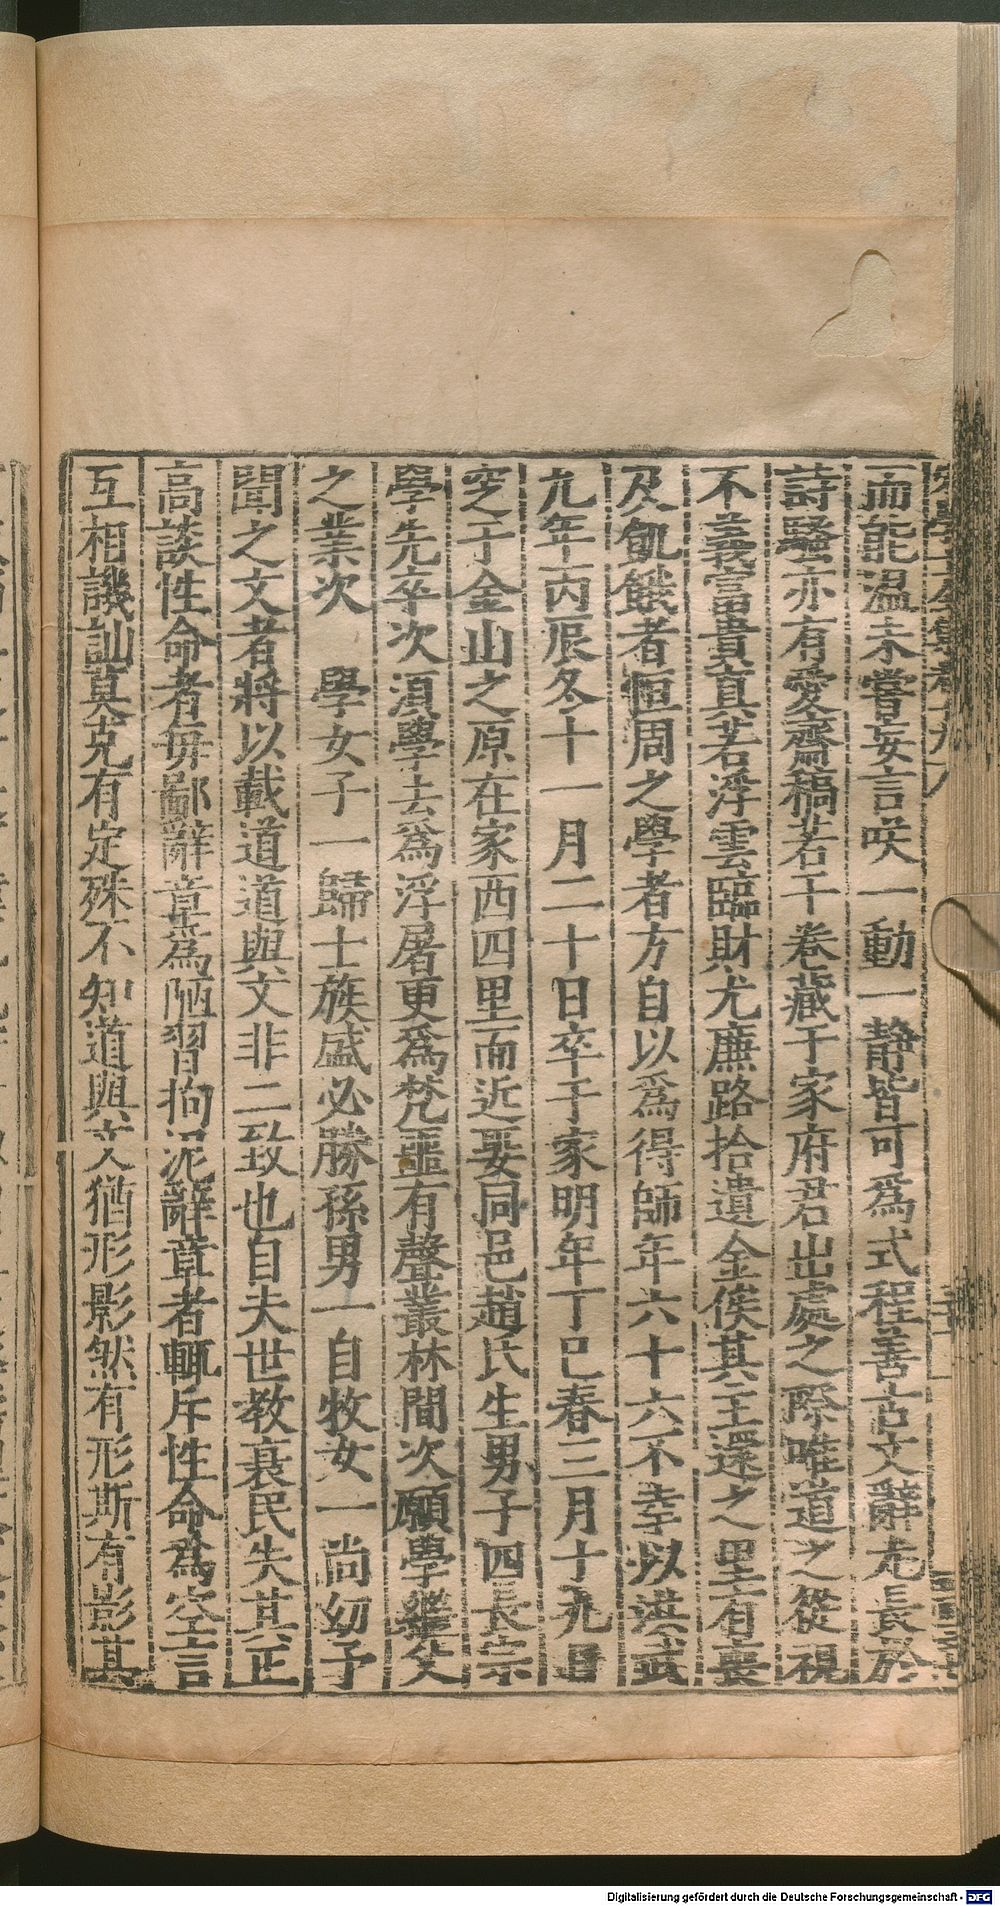 而能温未嘗妄言咲一動一静皆可爲式程善古文辭尤長於
詩騷亦有愛齋稿若干巻藏于家府君出處之際唯道之從視
不義富貴真若浮雲臨財尤廉路拾遺金俟其主還之里有喪
及飢餓者恒周之學者方自以爲得師年六十六不幸以洪武
九年丙辰冬十一月二十日卒于家明年丁巳春三月十九日
窆于金山之原在家西四里而近娶同邑趙氏生男子四長宗
學先卒次湏學去爲浮屠更爲梵噩有聲叢林間次願學繼父
之業次　學女子一歸士族盛必勝孫男一自牧女一尚幼予
聞之文者將以載道道與文非二致也自夫世教衰民失其正
高談性命者毎鄙辭章爲陋習拘泥辭章者輒斥性命爲空言
互相譏訕莫克有定殊不知道與文猶形影然有形斯有影其
Digitalisierung gefördert durch die Deutsche Forschungsgemeinschaft - DFG